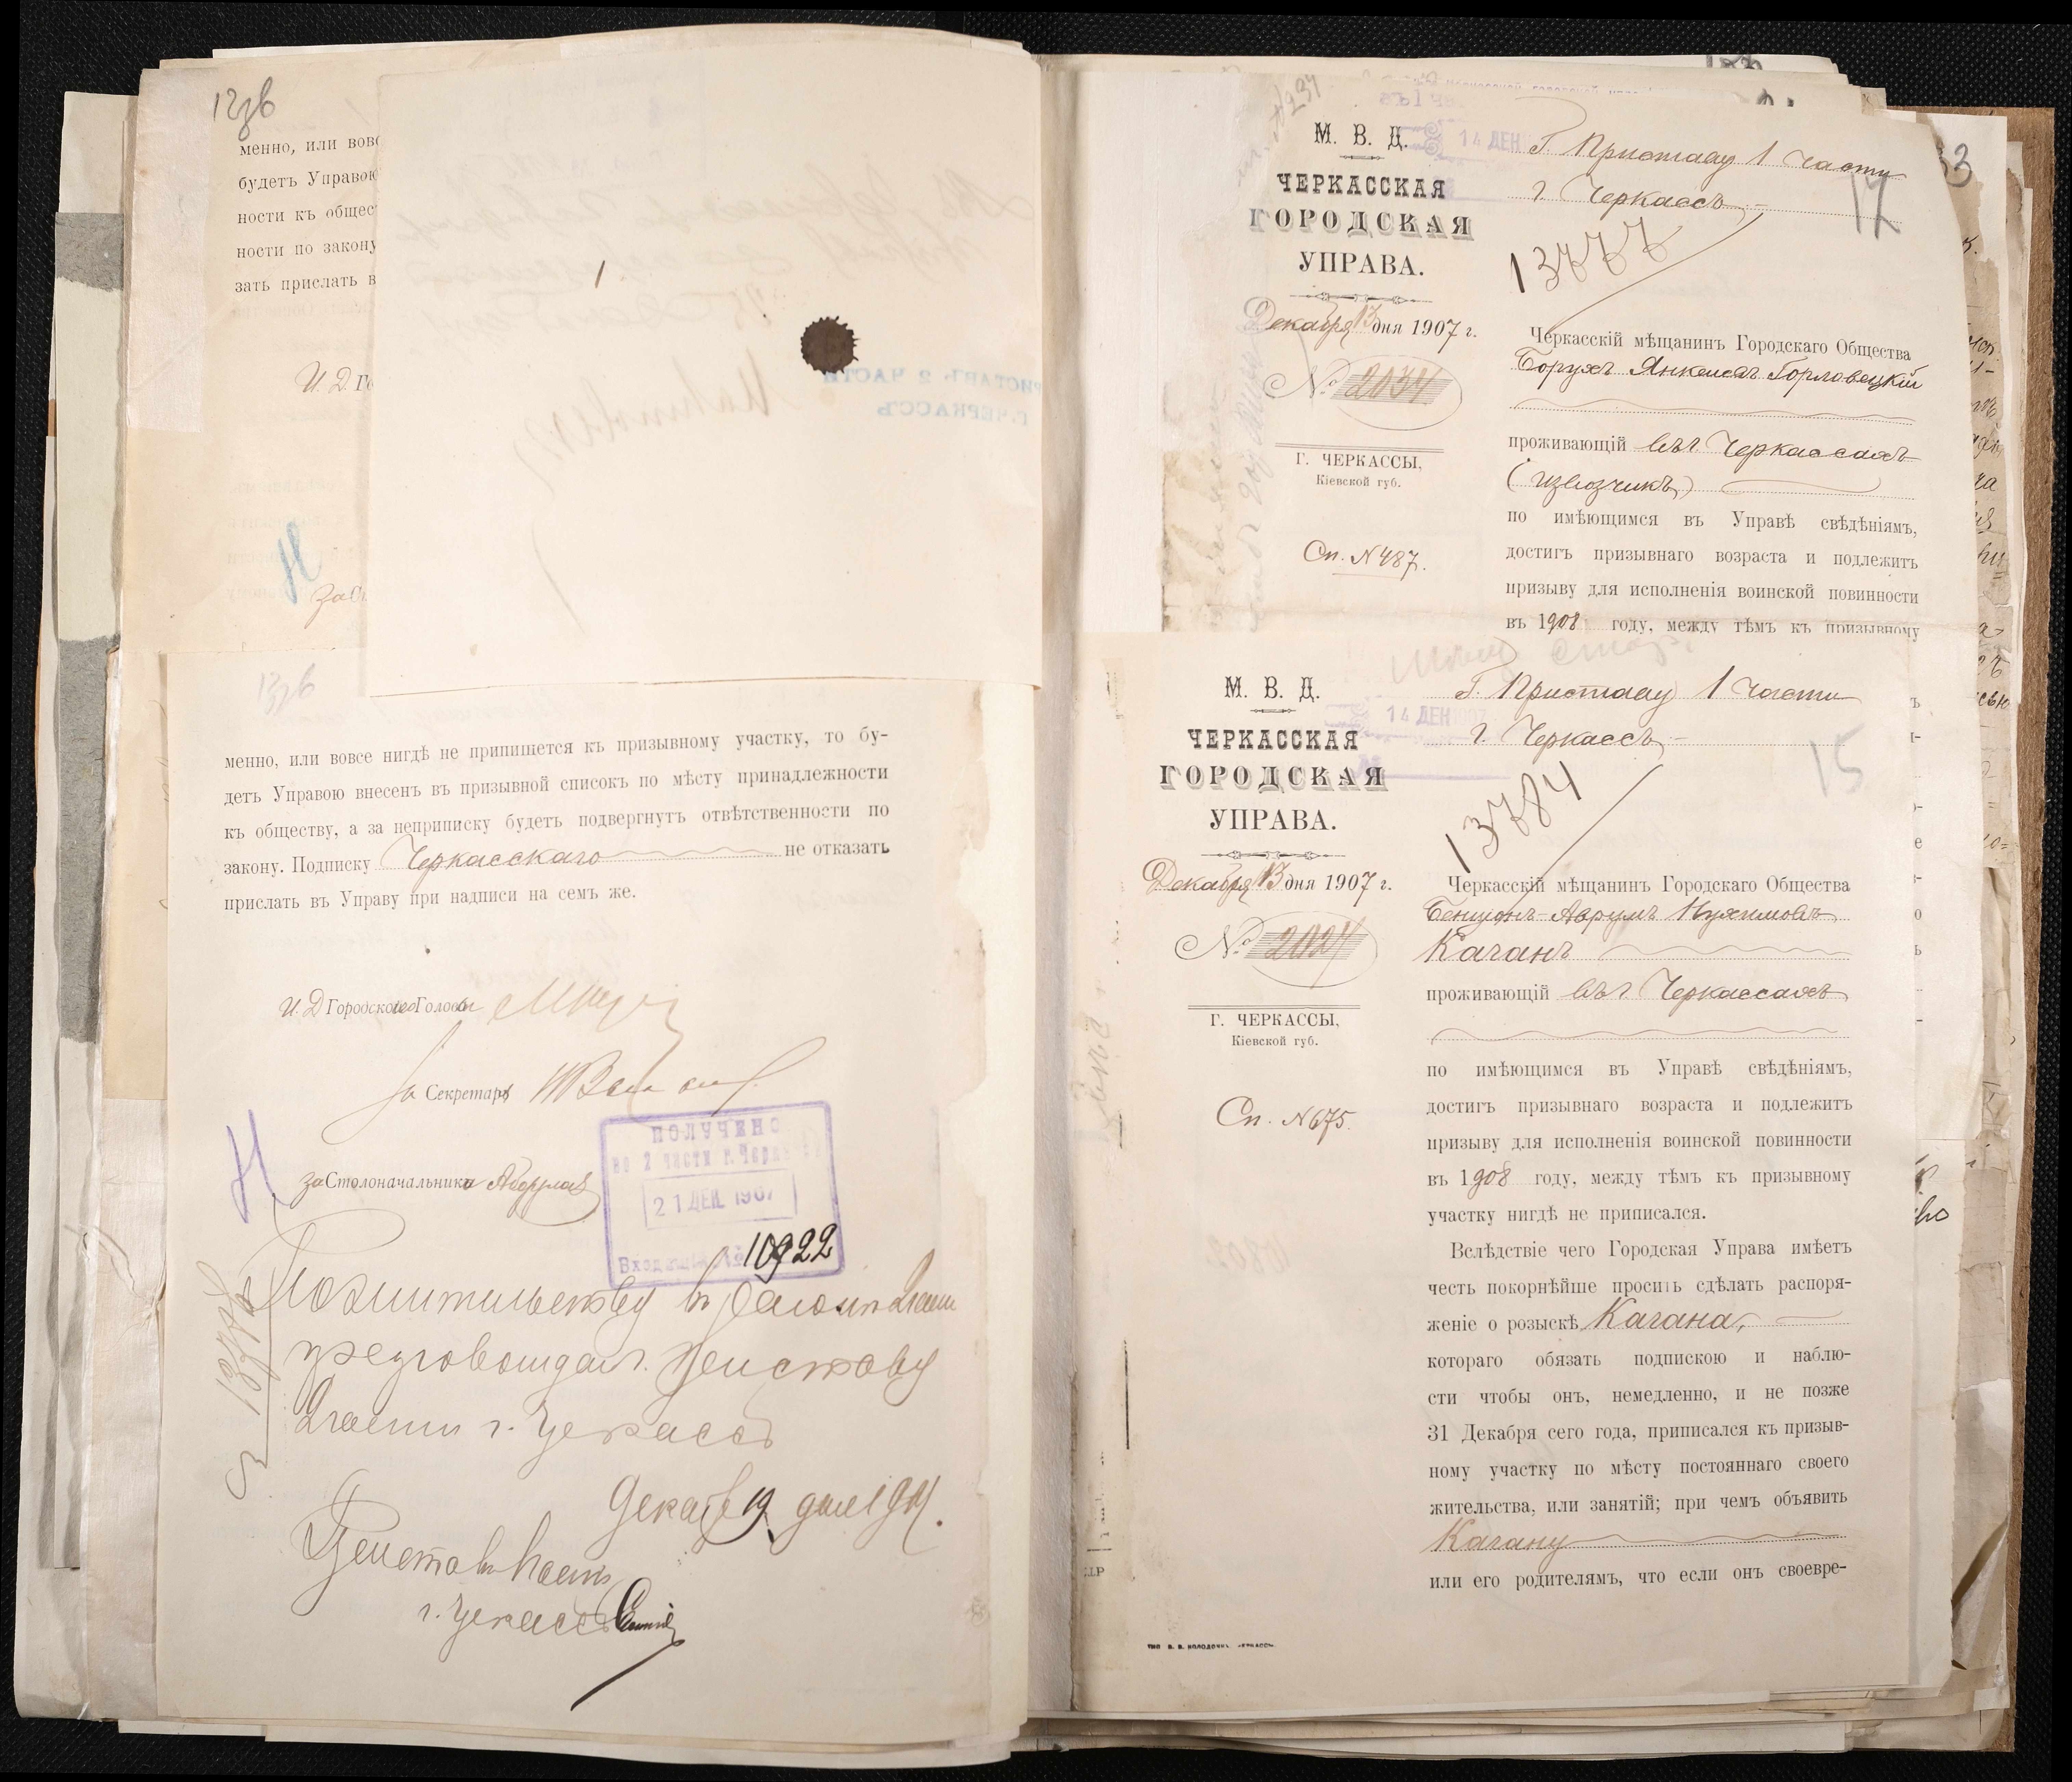 13зв
менно, или вов
будетъ Управою
ности къ общес
ности по закону
зать прислать в
И. Д. Го
за С
ПРИСТАВЪ 2 ЧАСТИ
Г. ЧЕРКАССЪ
13зв
менно, или вовсе нигдѣ не припишется къ призывному участку, то бу-
детъ Управою внесенъ въ призывной списокъ по мѣсту принадлежности
къ обществу, а за неприписку будетъ подвергнутъ отвѣтственности по
закону. Подписку Черкасскаго не отказать
прислать въ Управу при надписи на семъ же.
И. Д. Городского Головы
за Секретаря
за Столоначальника
ПОЛУЧЕНО
во 2 части г. Черкассъ
21 ДЕК. 1907
Входящій № 10922
По жительству въ районѣ 2 части
препровождаю Приставу
2 части г. Черкассъ
Декабря 19 дня 1907 г.
Приставъ 1 части
г. Черкассъ
М. В. Д.
ЧЕРКАССКАЯ
ГОРОДСКАЯ
УПРАВА.
Декабря 13 дня 1907 г.
№ 2034
Г. ЧЕРКАССЫ,
Кіевской губ.
Сп. № 487.
14 ДЕК
Г. Приставу 1 части
г. Черкассъ
17
13777
Черкасскій мѣщанинъ Городскаго Общества
Борухъ Янкелевъ Горловецкій
проживающій въ г. Черкассахъ
(извозчикъ)
по имѣющимся въ Управѣ свѣдѣніямъ,
достигъ призывнаго возраста и подлежитъ
призыву для исполненія воинской повинности
въ 1908 году, между тѣмъ къ призывному
М. В. Д.
ЧЕРКАССКАЯ
ГОРОДСКАЯ
УПРАВА.
Декабря 13 дня 1907 г.
№ 2024
Г. ЧЕРКАССЫ,
Кіевской губ.
Сп. № 675.
14 ДЕК 1907
Г. Приставу 1 части
г. Черкассъ
15
13784
Черкасскій мѣщанинъ Городскаго Общества
Бенціонъ-Аврумъ Нухимовъ
Каганъ
проживающій въ г. Черкассахъ
по имѣющимся въ Управѣ свѣдѣніямъ,
достигъ призывнаго возраста и подлежитъ
призыву для исполненія воинской повинности
въ 1908 году, между тѣмъ къ призывному
участку нигдѣ не приписался.
Вслѣдствіе чего Городская Управа имѣетъ
честь покорнѣйше просить сдѣлать распоря-
женіе о розыскѣ Кагана,
котораго обязать подпискою и наблю-
сти чтобы онъ, немедленно, и не позже
31 Декабря сего года, приписался къ призыв-
ному участку по мѣсту постояннаго своего
жительства, или занятій; при чемъ объявить
Кагану
или его родителямъ, что если онъ своевре-